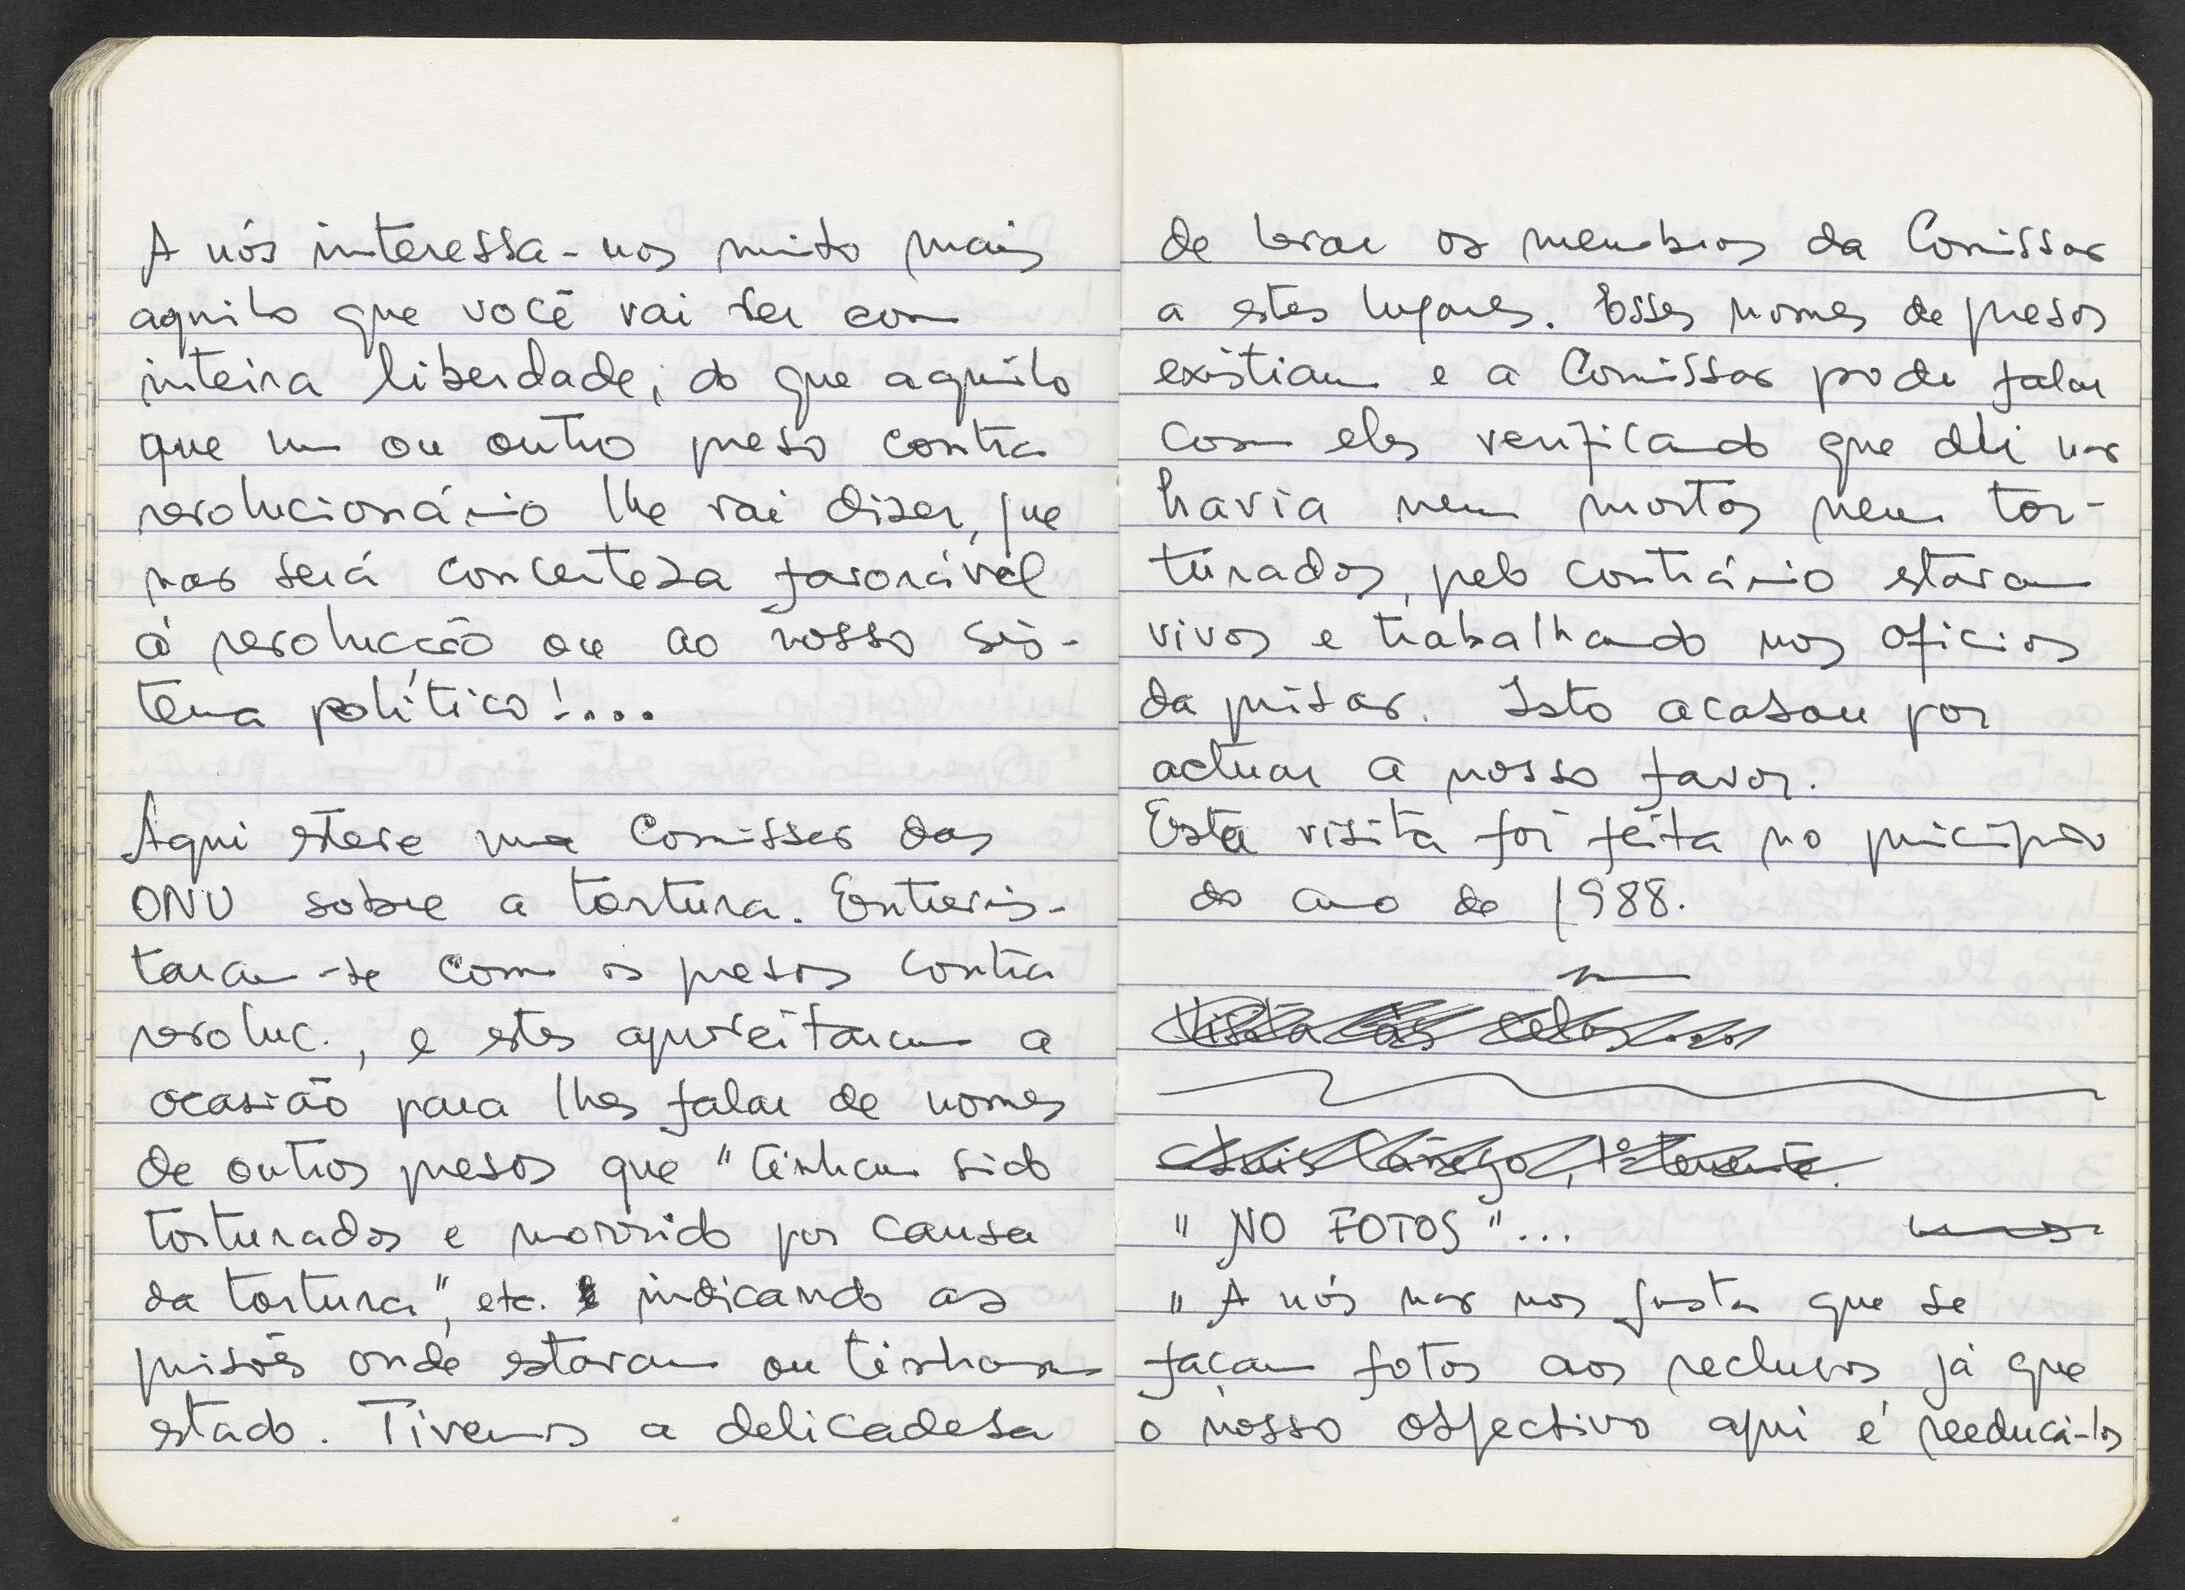 A nós interessa-nos muito mais
aquilo que você vai ver com
inteira liberdade, do que aquilo
que um ou outro preso contra
revolucionário lhe vai dizer, que
não será concerteza favorável
á revolucção ou ao nosso sis-
tema político!....
Aqui esteve uma Comissão das
ONU sobre a tortura. Entrevis-
taram-se com os presos contra
revoluc., e estes aproveitaram a
ocasião para lhes falar de nomes
de outros presos que "tinham sido
torturados e morrido por causa
da tortura", etc. indicando as
prisões onde estavam ou tinham
estado. Tivemos a delicadesa
de levar os membros da Comissão
a estes lugares. Esses nomes de presos
existiam e a Comissão pode falar
com eles verificando que ali não
havia nem mortos nem tor-
turados, pelo contrário estavam
vivos e trabalhando nos oficios
da prisão. Isto acabou por
actuar a nosso favor.
Esta visita foi feita no principio
do ano de 1988.
Visita ás celas....
Luis Cárego, 1º tenente.
"NO FOTOS"...
"A nós não nos gusta que se
façam fotos aos reclusos já que
o nosso objectivo aqui é reeducá-los